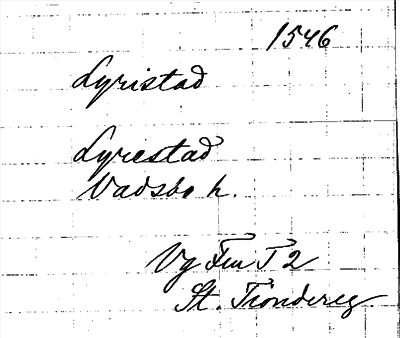 1546
Lyristad
Lyrestad
Vadsbo h.
Vg Fru T 2
St. Tiondereg